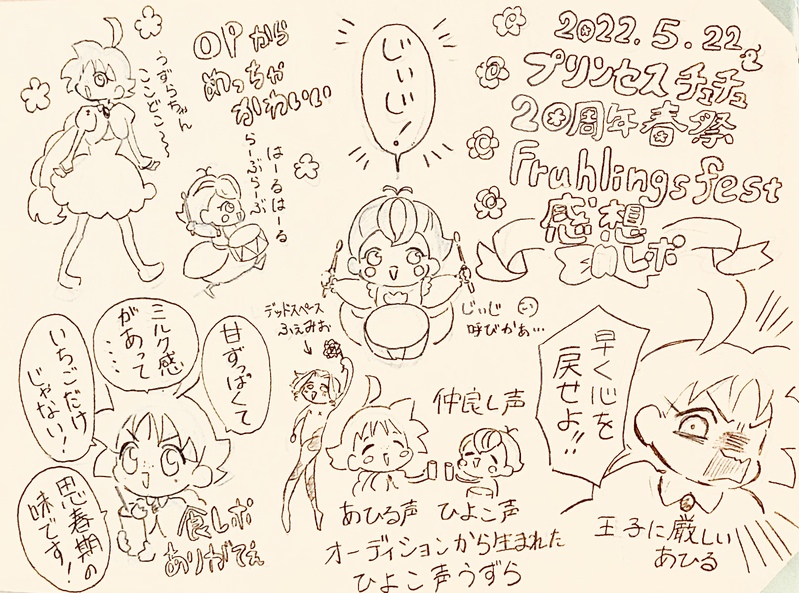 2022.5.22
プリンセスチュチュ
20周年春祭
Fruhlingsfest
感想
レポ
OPから
めっちゃ
かわいい
うずらちゃん
ここどこ〜〜
はーるはーる
らーぶらーぶ
じぃじ!
デッドスペース
ふぇみお
↓
じぃじ
呼びかぁ…
甘ずっぱくて
ミルク感
があって
……
いちごだけ
じゃない!
思春期の
味です!
食レポ
ありがてぇ
仲良し声
あひる声
ひよこ声
オーディションから生まれた
ひよこ声うずら
早く心を
戻せよ!!
王子に厳しい
あひる